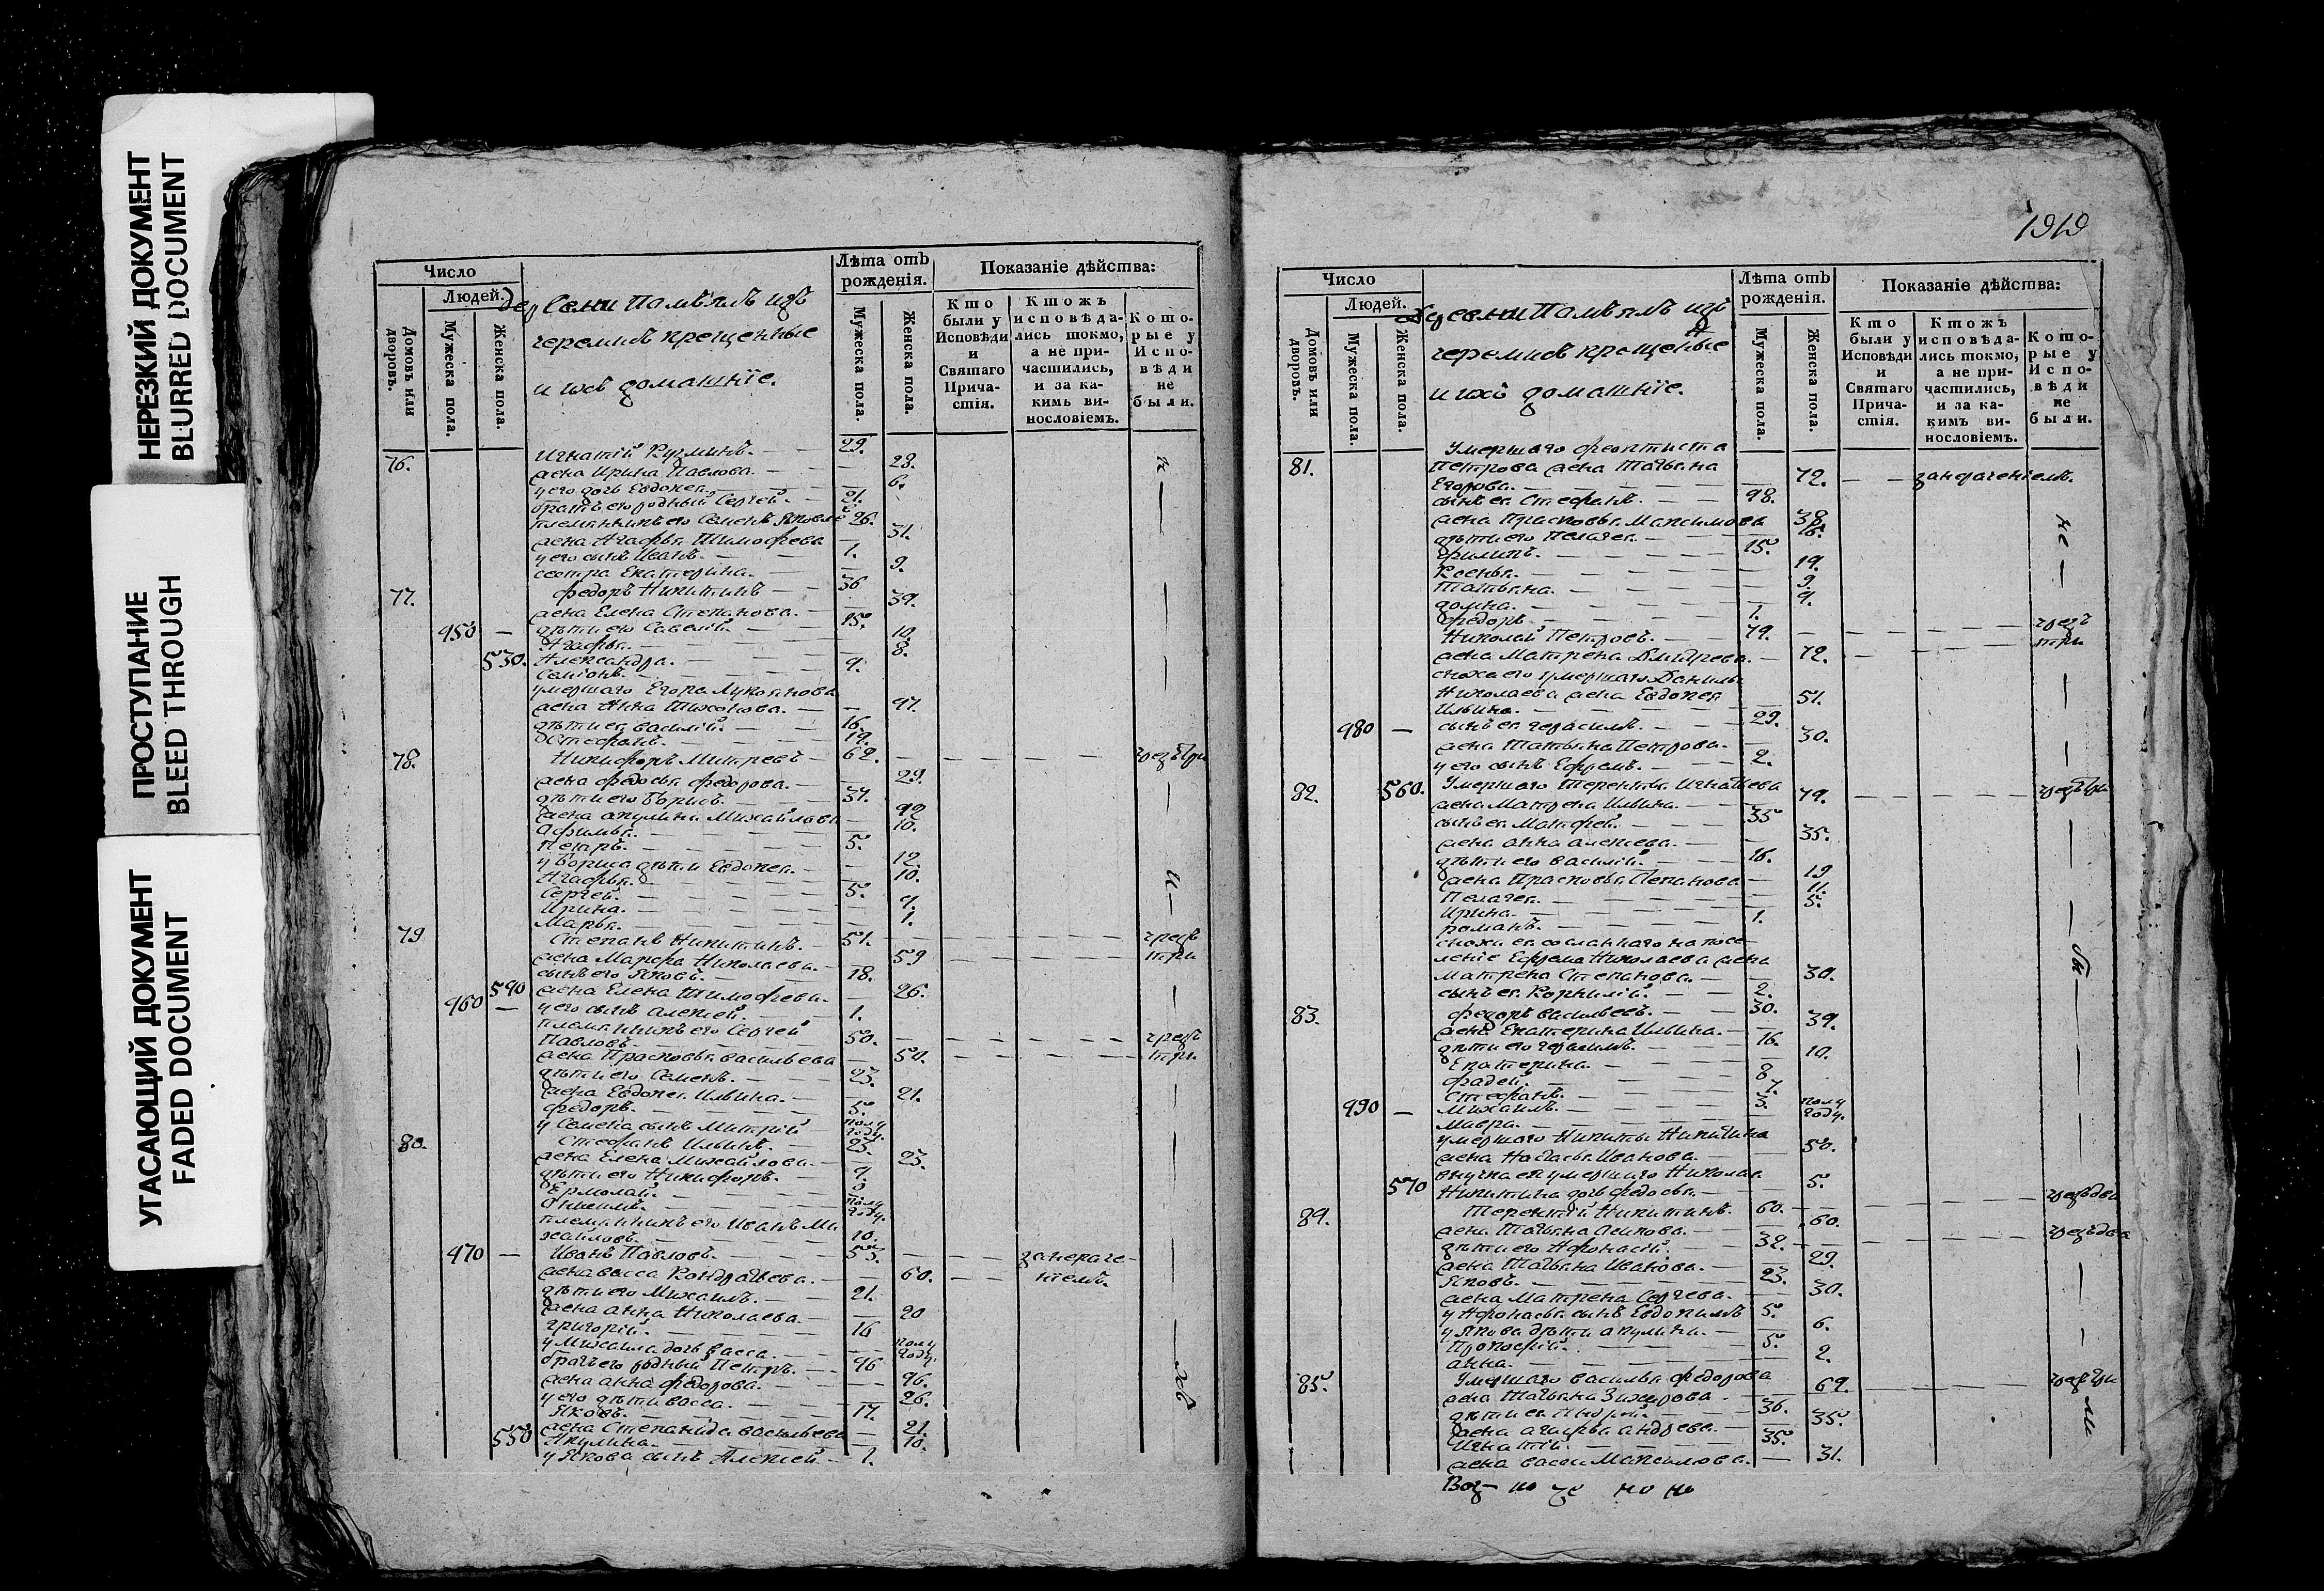 НЕРЕЗКИЙ ДОКУМЕНТ
BLURRED DOCUMENT
ПРОСТУПАНИЕ
BLEED THROUGH
УГАСАЮЩИЙ ДОКУМЕНТ
FADED DOCUMENT
Число
Людей.
Домовъ или дворовъ.
Мужеска пола.
Женска пола.
черемисъ крещенные
и ихъ домашнїе.
Лѣта отъ рожденія.
Мужеска пола.
Женска пола.
Показаніе дѣйства:
Кто были у Исповѣди и Святаго Причастія.
Ктожъ исповѣдались токмо, а не причастились, и за какимъ винословіемъ.
Которые у Исповѣди не были.
76. Игнатій Кузминъ. 29.
жена Ирина Павлова. 28.
у его дочь Евдокея. 6.
братъ его родный Сергей. 21.
племянникъ его Семенъ 26.
жена Агафья Тимофеева 31.
у его сынъ Иванъ. 1.
сестра Екатерина. 9.
77. Федоръ Никитинъ 36
жена Елена Степанова. 39.
950 дѣти его Савелій. 15.
Агафья. 10.
530. Александра. 8.
Семіонъ.
умершаго Егора Лукоянова
жена Анна Тихонова.
дѣти ея василій. 16.
Стефанъ.
78. Никифоръ Митревъ 62.
жена федосья федорова. 29.
дѣти его Борисъ.
жена акулина Михайлова
Афимья. 10.
Петръ. 5.
у Бориса дѣти Евдокея. 12.
Агафья. 10.
Сергей. 5.
Ирина.
Марья. 1.
79 Степанъ Никитинъ. 51.
жена Марфа Николаева. 59
сынъ его Яковъ. 18.
жена Елена Тимофеева. 26.
960 у его сынъ алексей. 1.
племянникъ его Сергей
Павловъ. 50.
жена Прасковья васильева 50.
дѣти его Семенъ. 23.
жена Евдокея Ильина. 21.
федоръ. 5.
у Семена сынъ Митрій полу году.
80. Стефанъ Ильинъ. 23.
жена Елена Михайлова. 23.
дѣти его Никифоръ.
Ермолай.
Анисимъ. полу году.
племянникъ его Иванъ Ми
хайловъ. 10.
970 Иванъ Павловъ. 53.
жена васса Кондратьева. 60.
дѣти его Михаилъ. 21.
жена анна Николаева. 20
григорій. 16
у Михаила дочь васса. полу году.
братъ его родный Петръ.
жена анна федорова.
у его дѣти васса. 26.
Яковъ. 17.
жена Степанида васильева 21.
550 Акулина. 10.
у Якова сынъ Алексей 1.
Число
Людей.
Домовъ или дворовъ.
Мужеска пола.
Женска пола.
черемисъ крещеные
и ихъ домашнїе.
Лѣта отъ рожденія.
Мужеска пола.
Женска пола.
Показаніе дѣйства:
Кто были у Исповѣди и Святаго Причастія.
Ктожъ исповѣдались токмо, а не причастились, и за какимъ винословіемъ.
Которые у Исповѣди не были.
Умершаго феоктиста
81. Петрова жена Татьяна
Егорова. 72.
сынъ ея Стефанъ.
жена Прасковья Максимова
дѣти его Пелагея.
филипъ. 15.
Ксенья.
Татьяна. 9.
домна.
федоръ. 1.
Николай Петровъ.
жена Матрена Дмитрева. 72.
сноха его умершаго Данилы
Николаева жена Евдокея
Ильина. 51.
980 сынъ ея герасимъ. 29.
жена Татьяна Петрова. 30.
у его сынъ Ефремъ. 2.
82. 560. Умершаго Терентья Игнатьева
жена Матрена Ильина.
сынъ ея Матфей. 35
жена анна алексева. 35.
дѣти его василій. 16.
жена Прасковья Степанова 19
Пелагея. 11.
Ирина. 5.
романъ. 1.
снохи ея сосланнаго на посе-
леніе Ефрема Николаева жена
Матрена Степанова. 30.
сынъ ея Корнилій. 2.
83. федоръ васильевъ. 30.
жена Екатерина Ильина. 39.
дѣти его герасимъ. 16.
Екатерина. 10.
фадей. 8
Стефанъ. 7.
990 Михаилъ. 3.
Мавра. полу году.
умершаго Никиты Никитина
жена Настасья Иванова. 50.
внучка ея умершаго Николая
570 Никитина дочь федосья. 5.
84. Терентій Никитинъ. 60.
жена Татьяна Осипова. 60.
дѣти его Афонасій. 32.
жена Татьяна Иванова. 29.
Яковъ. 23.
жена Матрена Сергева. 30.
у Афонасья сынъ Евдокимъ 5.
у Якова дѣти акулина. 6.
Прокофій. 5.
анна. 2.
85. Умершаго василья федорова
жена Татьяна 69.
дѣти ея Андрей. 36.
жена агафья андрева. 35.
Игнатій. 35.
жена васса Максимова. 31.